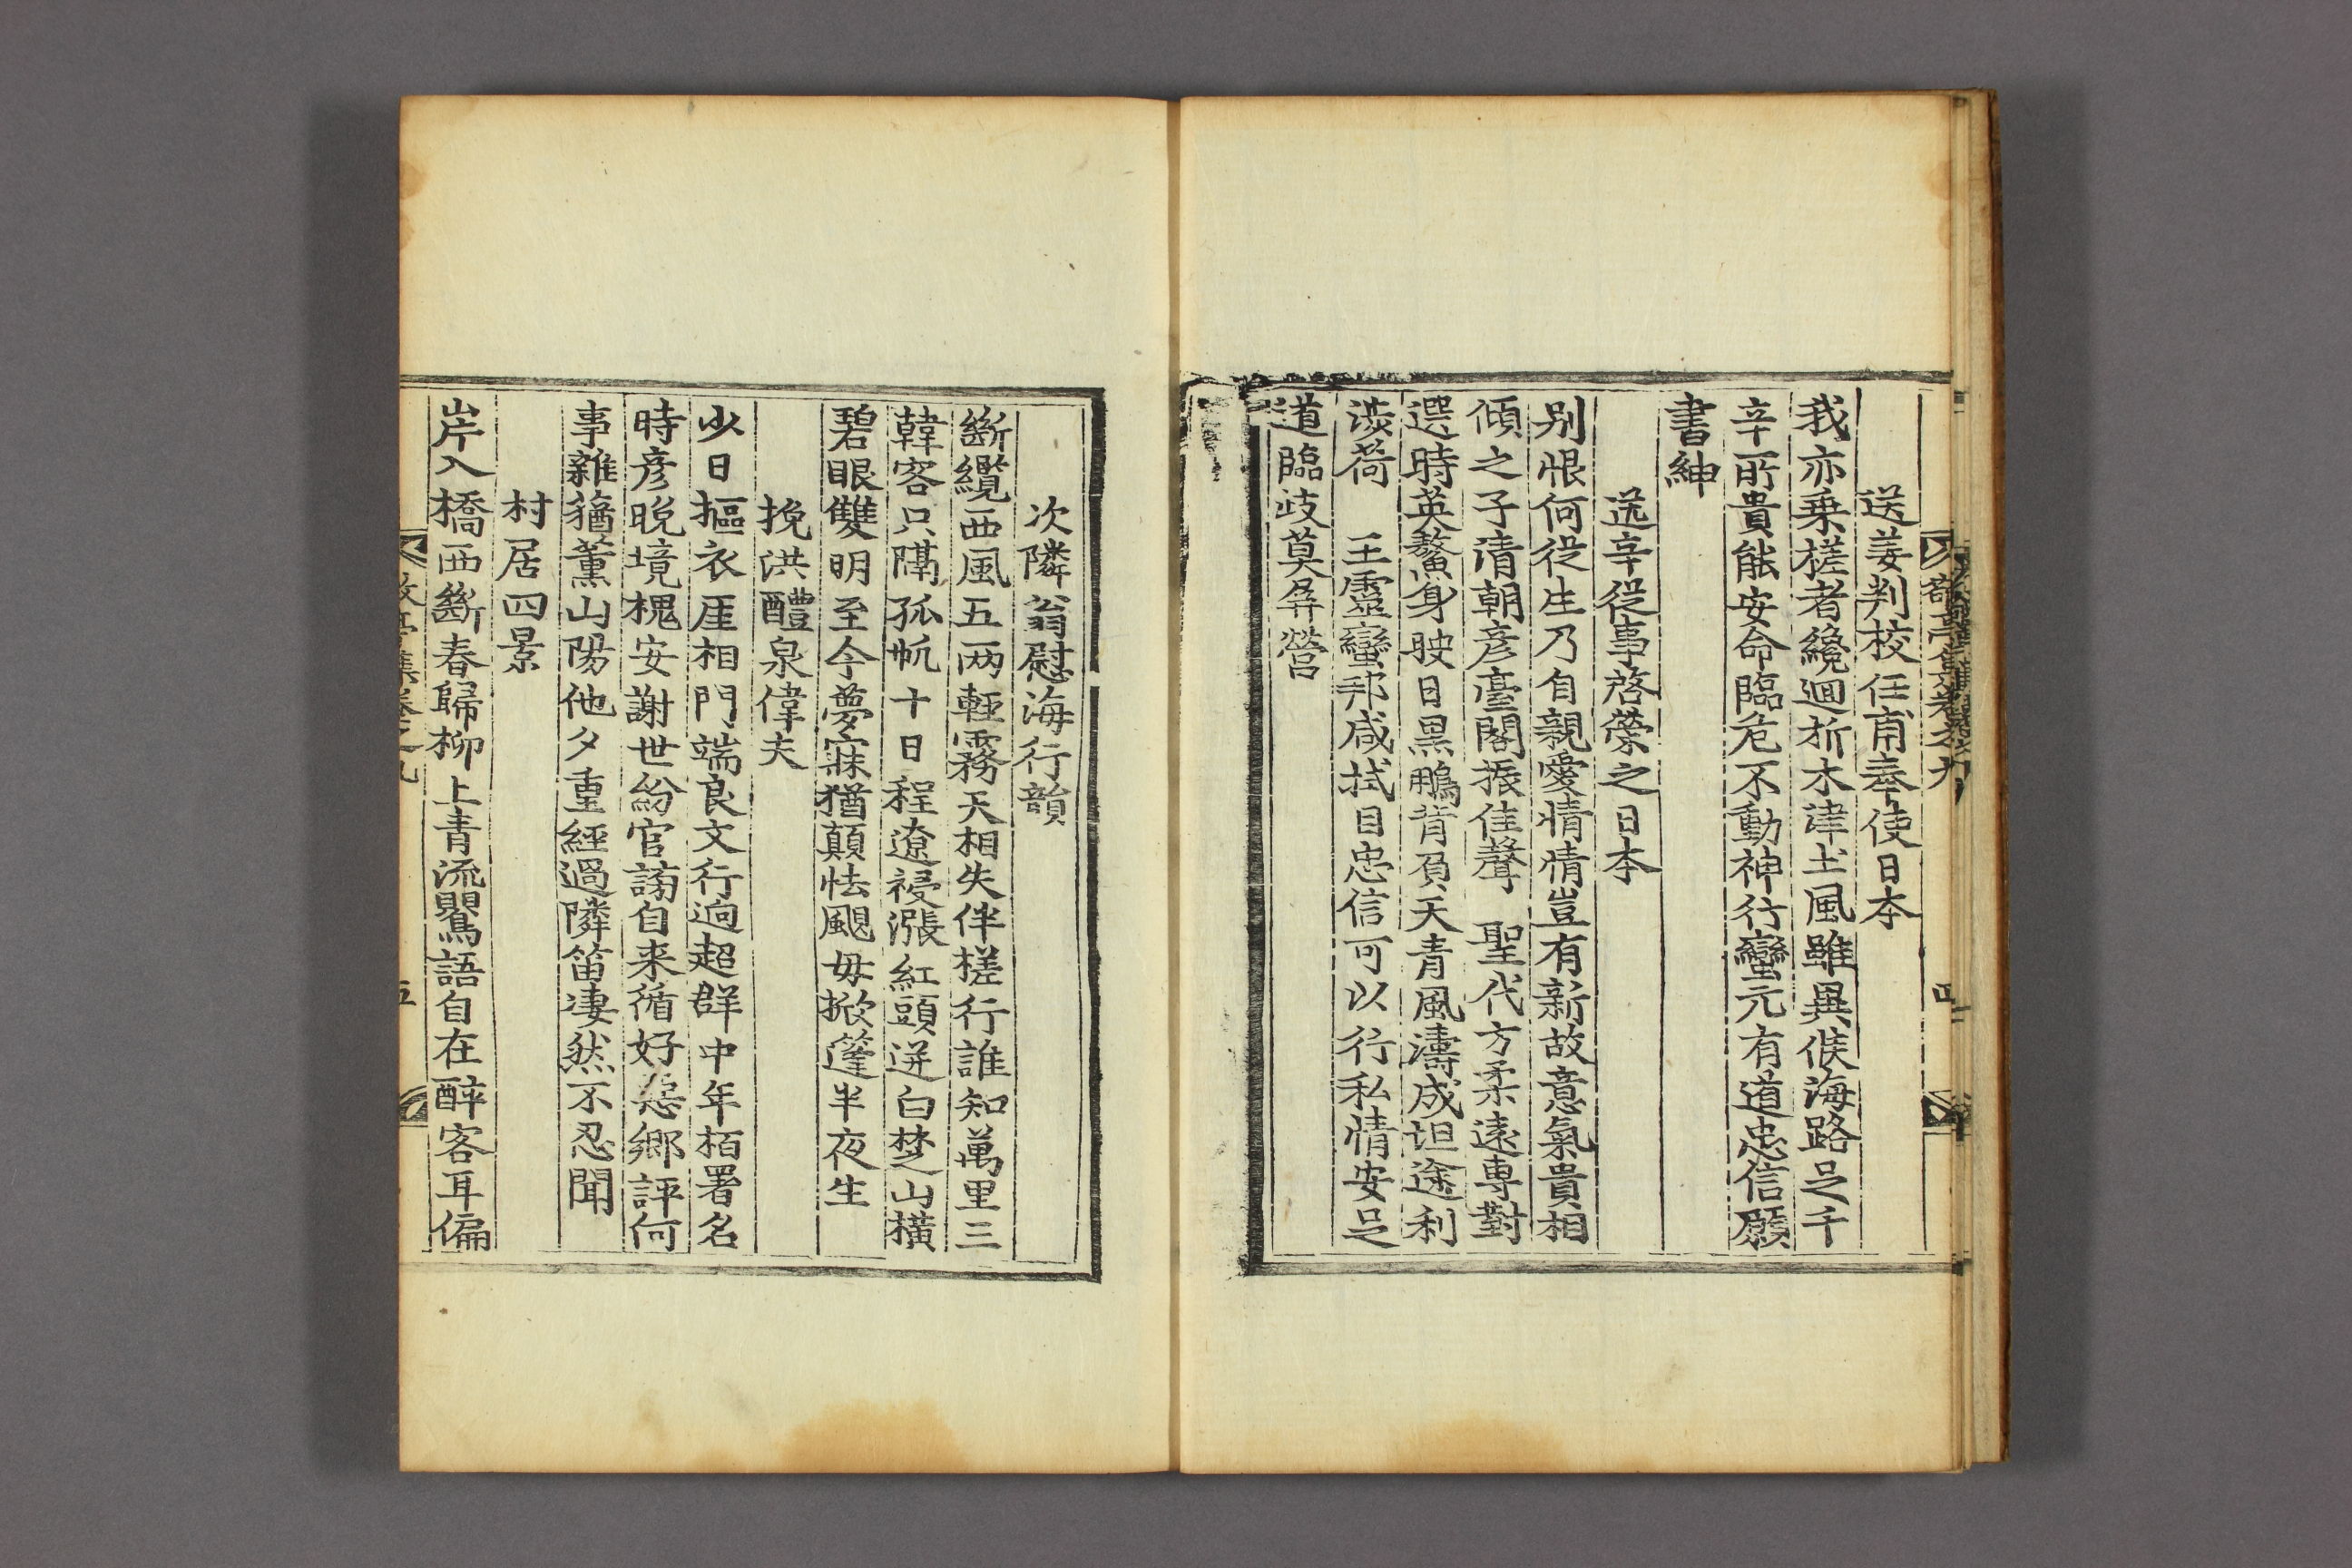 送姜判校任甫奉使日本
我亦乗槎者纔迴析木津土風雖異候海路足千
辛所貴能安命臨危不動神行蠻元有道忠信願
書紳
送辛從事啓榮之日本
別恨何從生乃自親愛情情豈有新故意氣貴相
傾之子清朝彦臺閣振佳聲 聖代方柔遠専對
選時英鰲身映日黒鵬背負天青風濤成坦途利
渉荷 王靈蠻邦咸拭目忠信可以行私情安足
道臨歧莫屏營
次隣翁慰海行韻
斷纜西風五两輕霧天相失伴槎行誰知萬里三
韓客只隔孤帆十日程遼祲漲紅頭迸白梵山横
碧眼雙明至今夢寐猶顛怯颶母掀篷半夜生
挽洪醴泉偉夫
少日摳衣厓相門端良文行逈超群中年栢署名
時彦晩境槐安謝世紛官謗自来循好惡郷評何
事雜蕕薫山陽他夕重經過隣笛凄然不忍聞
村居四景
岸入橋西斷春歸柳上青流鸎語自在醉客耳偏